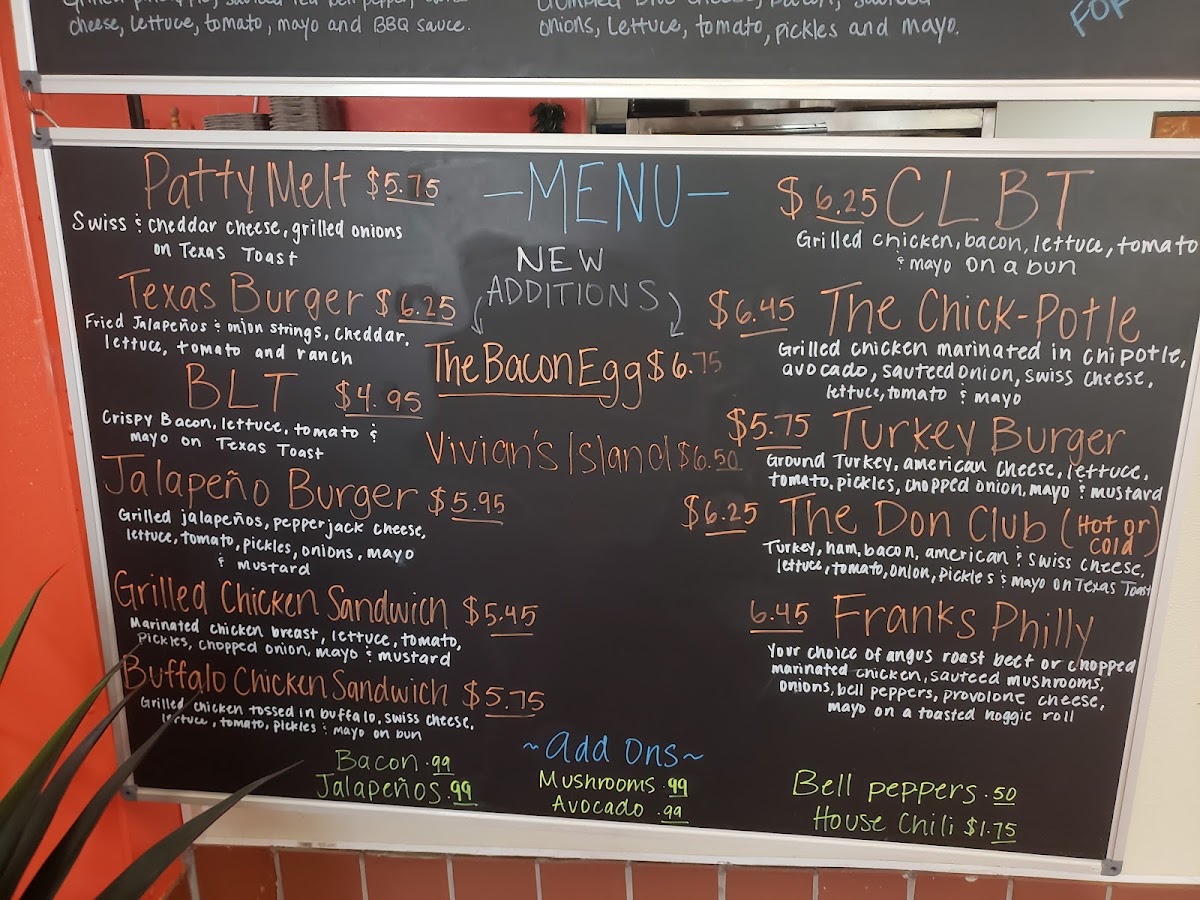 cheese, lettuce, tomato, mayo and BBQ sauce.
onions, lettuce, tomato, pickles and mayo.
FOR
-MENU-
NEW
ADDITIONS
The Bacon Egg $6.75
Vivian's Island $6.50
Patty Melt $5.75
Swiss & cheddar cheese, grilled onions
on Texas Toast
Texas Burger $6.25
Fried Jalapeños & onion strings, cheddar,
lettuce, tomato and ranch
BLT $4.95
Crispy Bacon, lettuce, tomato &
mayo on Texas Toast
Jalapeño Burger $5.95
Grilled jalapeños, pepperjack cheese,
lettuce, tomato, pickles, onions, mayo
& mustard
Grilled Chicken Sandwich $5.45
Marinated chicken breast, lettuce, tomato,
pickles, chopped onion, mayo & mustard
Buffalo Chicken Sandwich $5.75
Grilled chicken tossed in buffalo, swiss cheese,
lettuce, tomato, pickles & mayo on bun
$6.25 CLBT
Grilled chicken, bacon, lettuce, tomato
& mayo on a bun
$6.45 The Chick-Potle
Grilled chicken marinated in chipotle,
avocado, sauteed onion, swiss cheese,
lettuce, tomato & mayo
$5.75 Turkey Burger
Ground Turkey, american cheese, lettuce,
tomato, pickles, chopped onion, mayo & mustard
$6.25 The Don Club (Hot or
Cold)
Turkey, ham, bacon, american & swiss cheese,
lettuce, tomato, onion, pickles & mayo on Texas Toast
6.45 Franks Philly
Your choice of angus roast beef or chopped
marinated chicken, sauteed mushrooms,
onions, bell peppers, provolone cheese,
mayo on a toasted hoggie roll
~Add Ons~
Bacon .99
Jalapeños .99
Mushrooms .99
Avocado .99
Bell peppers .50
House Chili $1.75